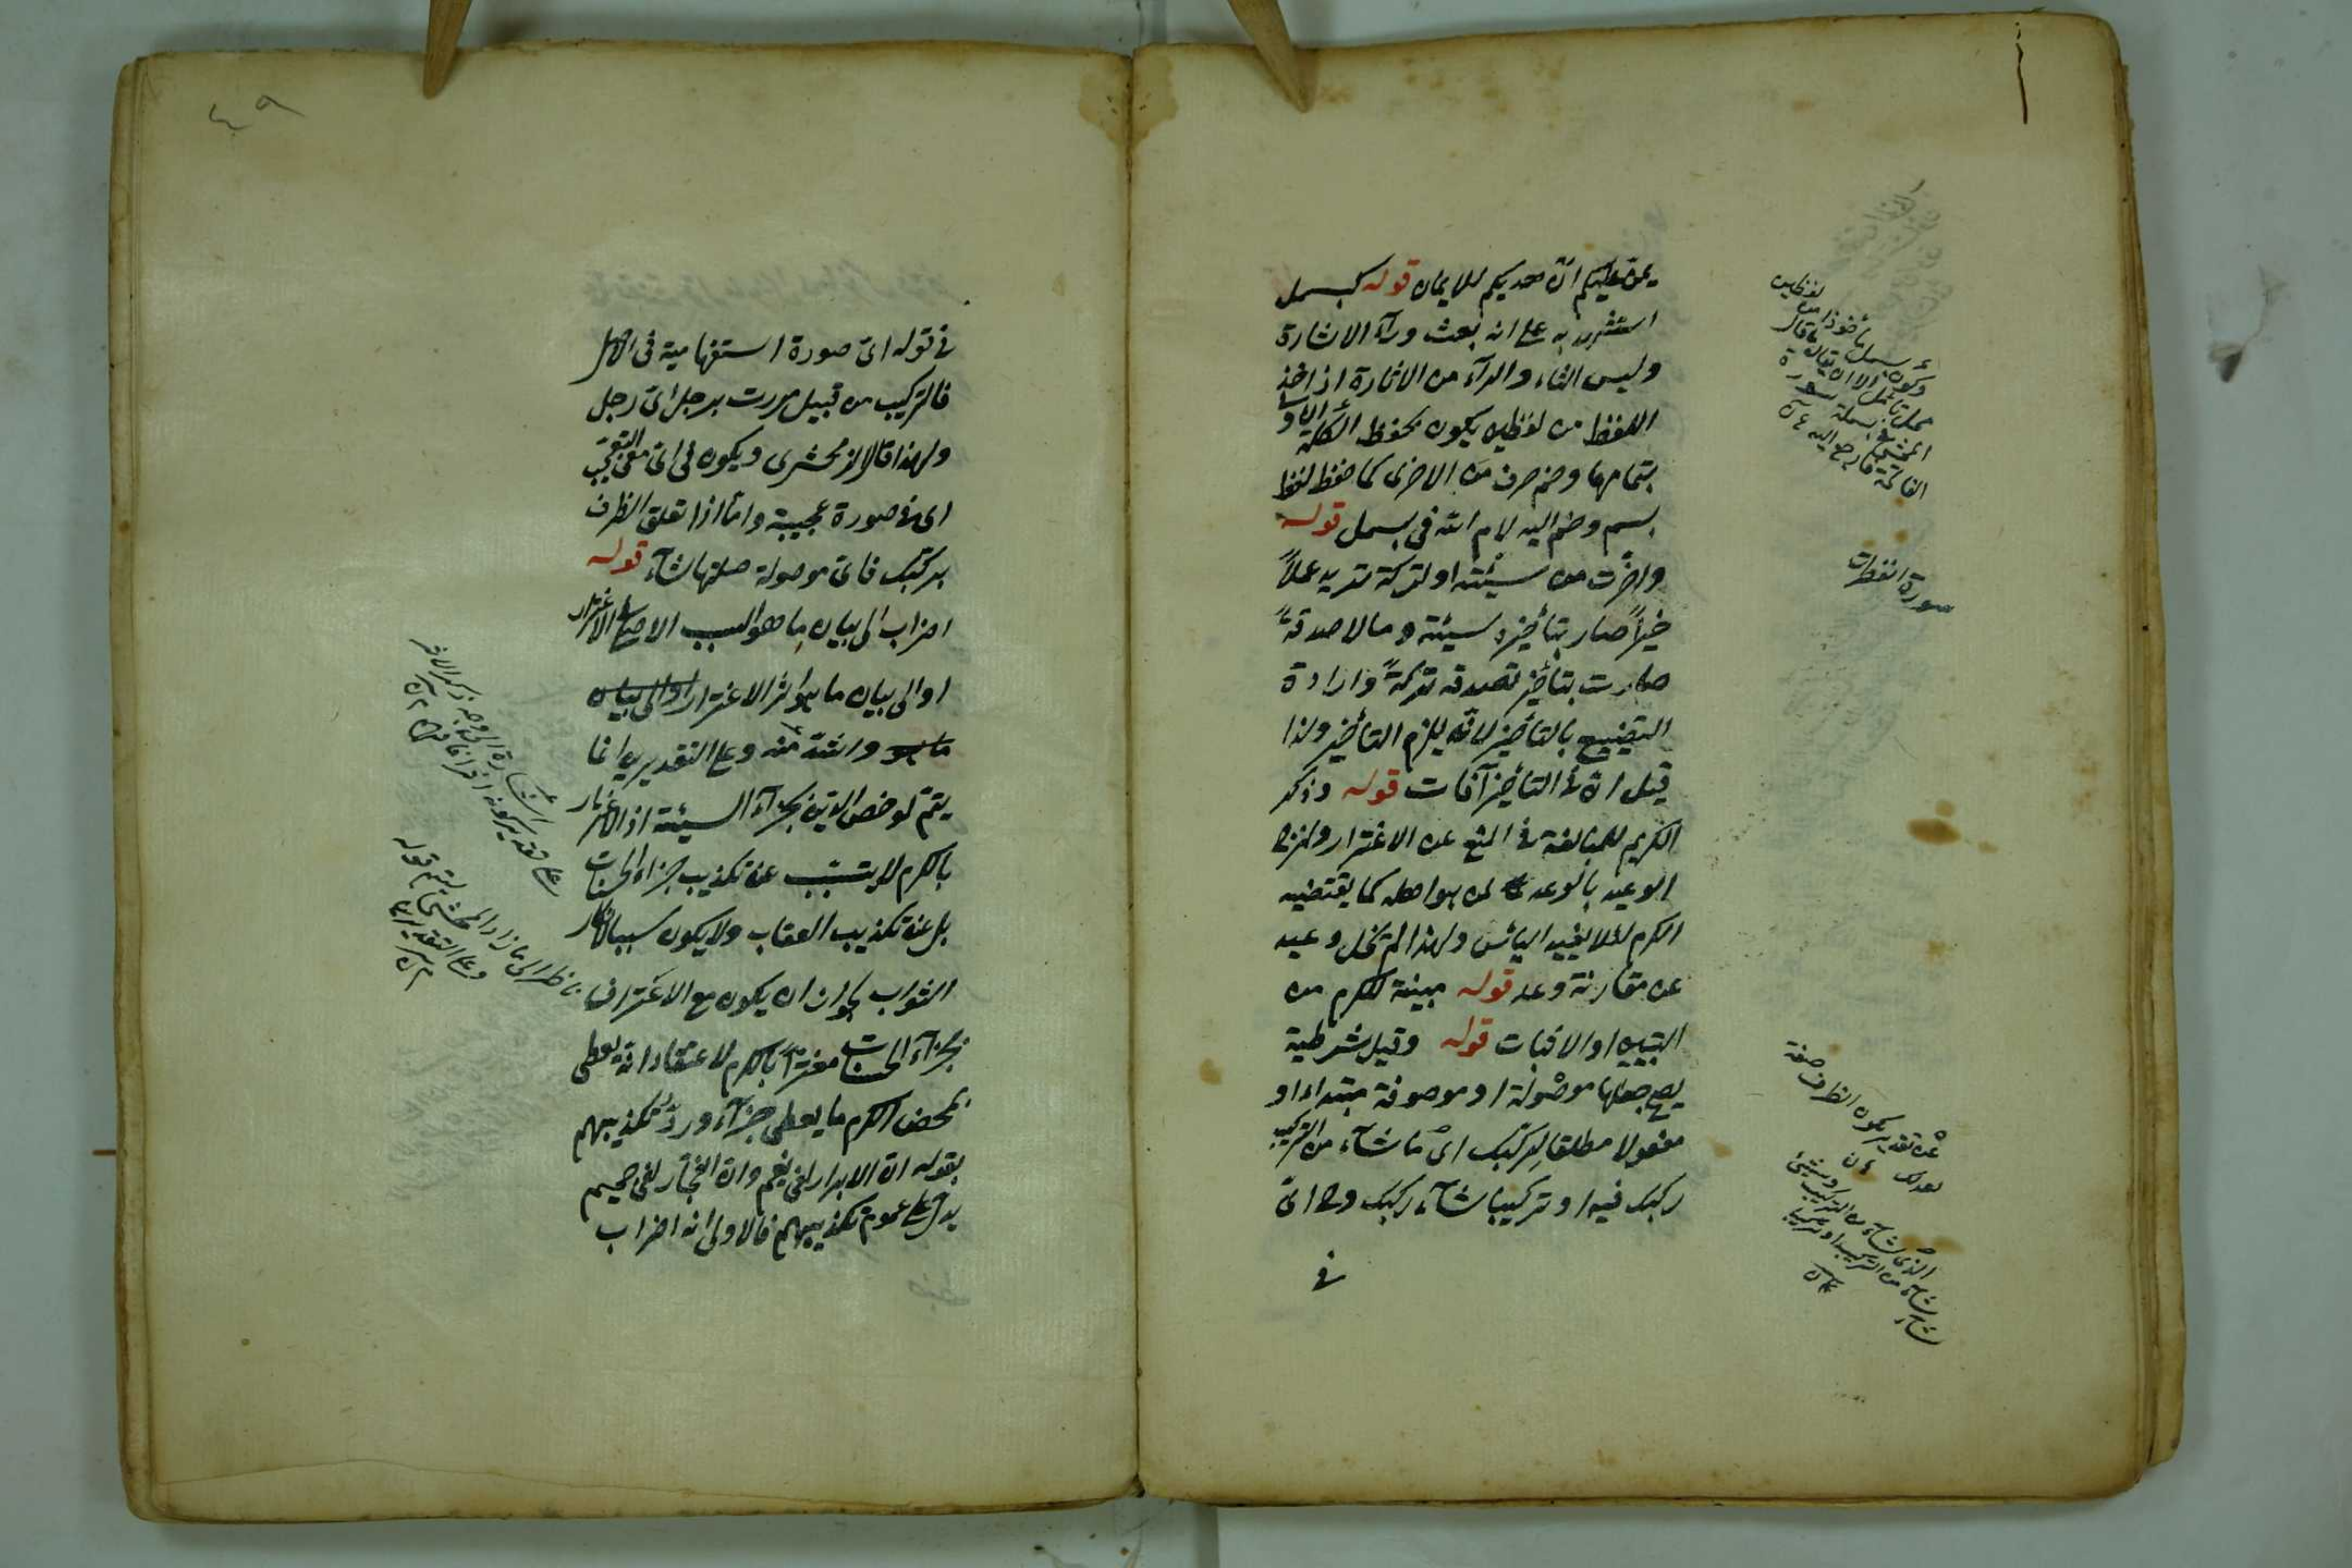 يمن عليكم ان هديكم للايمان قوله كبسمل
استشهد به على انه بعث ورآء الاثارة
وليس الثاء والرآء من الاثارة اذ اخذ
اللفظ من لفظين يكون بحفظ الكلمة الاولى
بتمامها وضم حرف من الاخرى كما حفظ لفظ
بسم وضم اليه لام الله في بسمل قوله
واخرت من سيئة او تركة تريد عملاً
خيراً صار بتأخيره سيئة ومالا صدقةً
صارت بتأخير تصدقه تركةً وارادة
التضييع بالتأخير لانه يلزم التأخير ولذا
قيل ان في التأخير آفات قوله وذكر
الكريم للمبالغة في المنع عن الاغترار
الوعيد بالوعد لمن هو اهله كما يقتضيه
الكرم لئلا يفيد اليأس ولهذا لم تخل وعيد
عن مقارنة وعد قوله مبينة للكرم من
التبيين او الاثبات قوله وقيل شرطية
يصح جعلها موصولة او موصوفة مبتداء او
مفعولا مطلقا لركبك اى ما شاء من التركيب
ركبك فيه او تركيبا شآء ركبك وح اىّ
في
لفظين
مأخوذا من
وكون بسمل
محل تأمل الا ان يقال ما قال
المحشي في بسملة سورة
الفاتحة فارجع اليه
سورة انفطرت
على تقدير كون الظرف صفة
لعدلك
الذى شاء من التركيب وشيئ
شاء من التركيب او تركيبا
شاء
٤٩
في قوله اىّ صورة استفهامية في الاصل
فالتركيب من قبيل مررت برجل اىّ رجل
ولهذا قال الزمخشرى ويكون في اىّ معنى التعجب
اى في صورة عجيبة وامّا اذا تعلق الظرف
بركبك فاىّ موصولة صلتها شآء قوله
اضراب الى بيان ما هو السبب الاصلى لاغترارهم
او الى بيان ما هو اثر الاغترار او الى بيان
ما هو واشدّ منه وعلى التقديرين انما
يتمّ لو خص الدين بجزآء السيئة اذ الاغترار
بالكرم لا يتسبب عن تكذيب جزاء الحسنات
بل عن تكذيب العقاب ولا يكون سببا لانكار
الثواب لجواز ان يكون مع الاعتراف
بجزآء الحسنات مغترّاً بالكرم لاعتقاد انه يعطى
بمحض الكرم ما يعطى جزآء وردّ تكذيبهم
بقوله ان الابرار لفى نعيم وان الفجّار لفى جحيم
يدل على عموم تكذيبهم فالاولى انه اضراب
اشارة الى وجه ذكر الآخر
على تقدير كونه
ناظر الى ما زاد المحشى بقوله
وعلى التقديرين